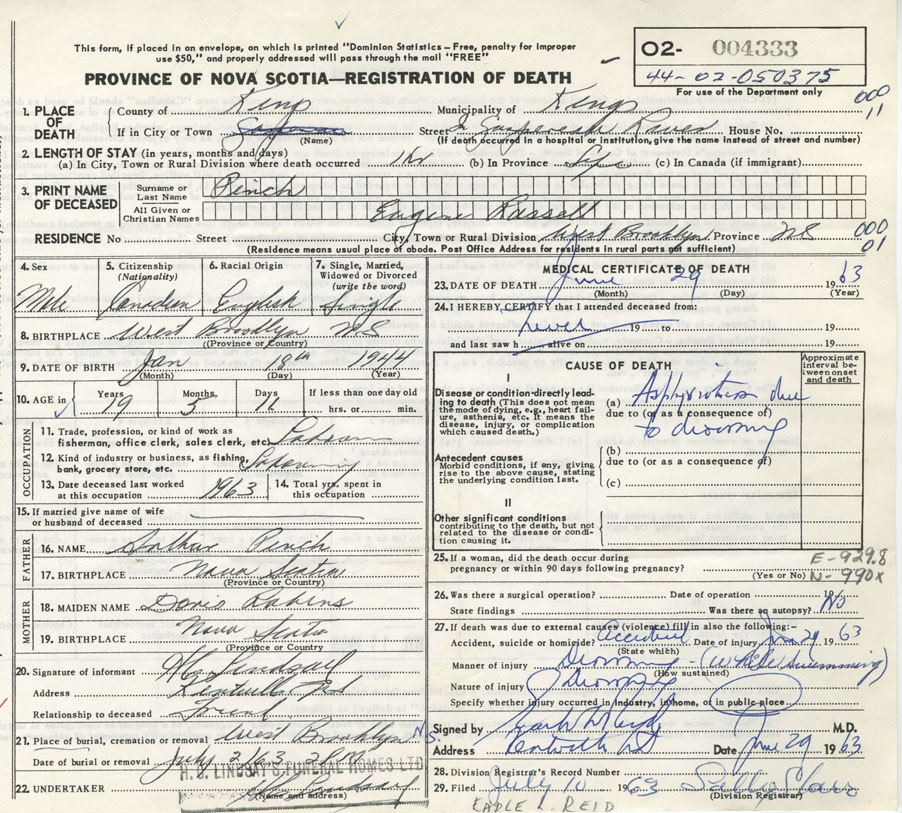 This form, if placed in an envelope, on which is printed "Dominion Statistics – Free, penalty for improper
use $50," and properly addressed will pass through the mail "FREE"
O2- 004333
44-02-050375
For use of the Department only
PROVINCE OF NOVA SCOTIA—REGISTRATION OF DEATH
000
11
1. PLACE OF DEATH
County of Kings Municipality of Kings
If in City or Town (Name) Street House No.
(If death occurred in a hospital or institution, give the name instead of street and number)
2. LENGTH OF STAY (in years, months and days)
(a) In City, Town or Rural Division where death occurred 1 hr (b) In Province Life (c) In Canada (if immigrant)
3. PRINT NAME OF DECEASED
Surname or Last Name Pinch
All Given or Christian Names Eugene Russell
RESIDENCE No Street City, Town or Rural Division West Brooklyn Province NS
000
01
(Residence means usual place of abode. Post Office Address for residents in rural parts not sufficient)
4. Sex
Male
5. Citizenship (Nationality)
Canadian
6. Racial Origin
English
7. Single, Married, Widowed or Divorced (write the word)
Single
8. BIRTHPLACE West Brooklyn NS
(Province or Country)
9. DATE OF BIRTH Jan 18th 1944
(Month) (Day) (Year)
10. AGE in Years Months Days If less than one day old
19 5 11 hrs. or min.
OCCUPATION
11. Trade, profession, or kind of work as
fisherman, office clerk, sales clerk, etc.
12. Kind of industry or business, as fishing,
bank, grocery store, etc.
13. Date deceased last worked
at this occupation 1963
14. Total yrs. spent in
this occupation
15. If married give name of wife
or husband of deceased
FATHER
16. NAME Arthur Pinch
17. BIRTHPLACE Nova Scotia
(Province or Country)
MOTHER
18. MAIDEN NAME Doris Robins
19. BIRTHPLACE Nova Scotia
(Province or Country)
20. Signature of informant Lindsay
Address Kentville NS
Relationship to deceased Friend
21. Place of burial, cremation or removal West Brooklyn N.S.
Date of burial or removal July 2/63
H. B. LINDSAY'S FUNERAL HOMES LTD
22. UNDERTAKER
(Name and address)
MEDICAL CERTIFICATE OF DEATH
23. DATE OF DEATH June 29 1963
(Month) (Day) (Year)
24. I HEREBY CERTIFY that I attended deceased from:
never 19 to 19
and last saw h alive on 19
CAUSE OF DEATH
Approximate interval between onset and death
I
Disease or condition directly leading
to death (This does not mean
the mode of dying, e.g., heart failure,
asthenia, etc. It means the
disease, injury, or complication
which caused death.)
(a) Asphyxiation due
due to (or as a consequence of)
to drowning
Antecedent causes
Morbid conditions, if any, giving
rise to the above cause, stating
the underlying condition last.
(b)
due to (or as a consequence of)
(c)
II
Other significant conditions
contributing to the death, but not
related to the disease or condition
causing it.
25. If a woman, did the death occur during
pregnancy or within 90 days following pregnancy?
(Yes or No)
E-929.8
N-990x
26. Was there a surgical operation? Date of operation 19
State findings Was there an autopsy? No
27. If death was due to external causes (violence) fill in also the following:–
Accident, suicide or homicide? Accident Date of injury June 29 1963
(State which)
Manner of injury Drowning - (while swimming)
(How sustained)
Nature of injury Drowning
Specify whether injury occurred in industry, in home, or in public place
Signed by M.D.
Address Kentville NS Date June 29 1963
28. Division Registrar's Record Number
29. Filed July 10 1963
(Division Registrar)